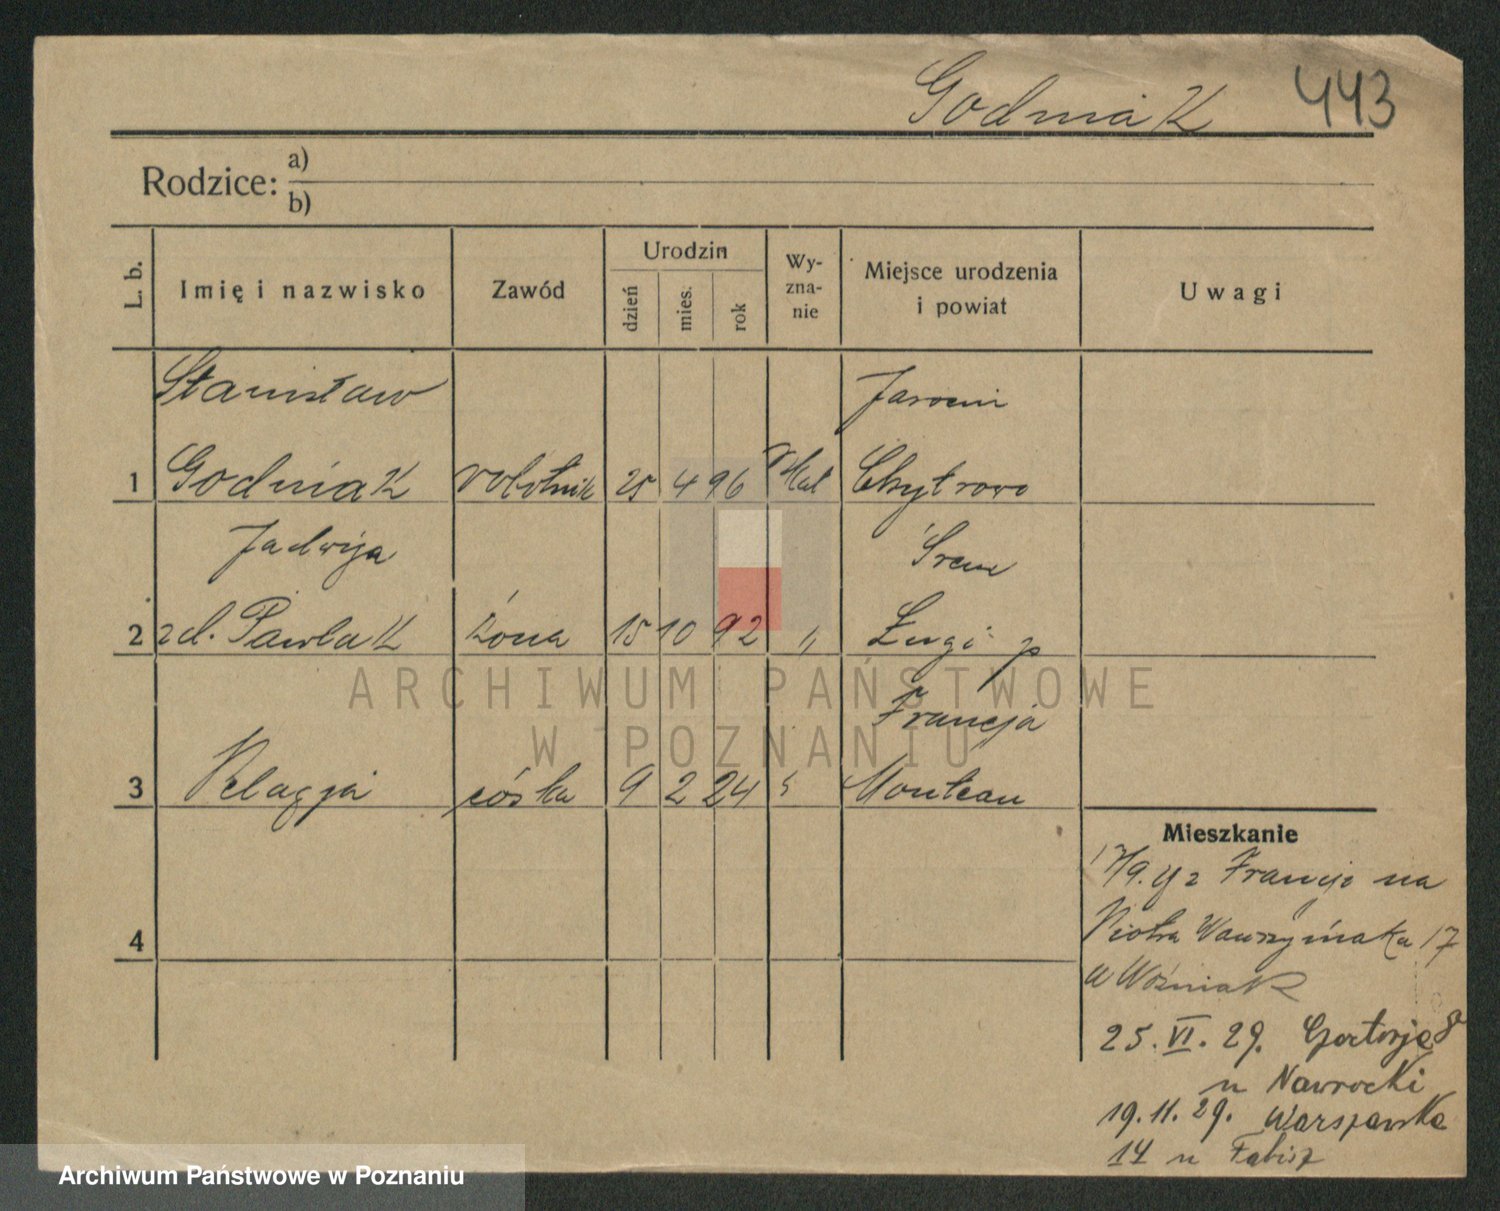 Godniak 443
Rodzice: a)
b)
L. b. Imię i nazwisko Zawód Urodzin dzień mies. rok Wy-zna-nie Miejsce urodzenia i powiat Uwagi
Stanisław Jarocin
1 Godniak robotnik 25 4 96 Chytrowo
Jadwiga Śrem
2 zd. Pawlak żona 15 10 92 " Ługi p
Francja
3 Pelagja córka 9 2 24 " Montceau
4
Mieszkanie
z Francji na
Piotra Wawrzyniaka 17
u Woźniak
25. VI. 29. 8
u Nawrocki
19.11.29. Warszawska
14 u Fabisz
ARCHIWUM PAŃSTWOWE
W POZNANIU
Archiwum Państwowe w Poznaniu